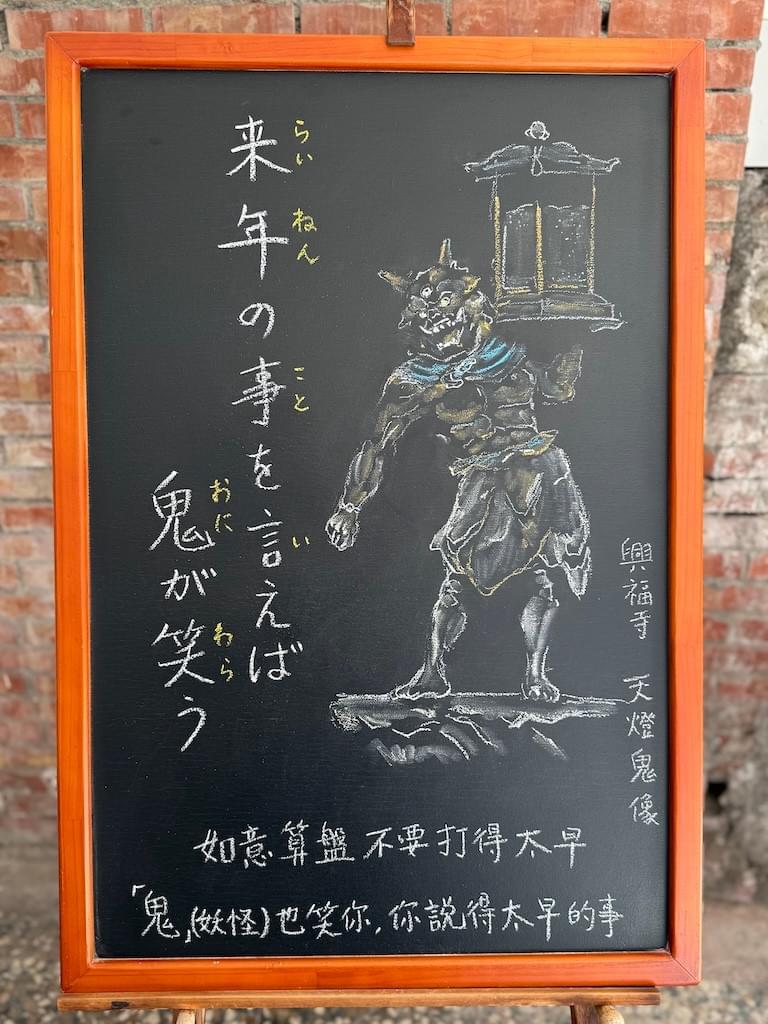 来年の事を言えば
らいねん こと い
鬼が笑う
おに わら
興福寺 天燈鬼像
如意算盤不要打得太早
「鬼」(妖怪)也笑你,你說得太早的事